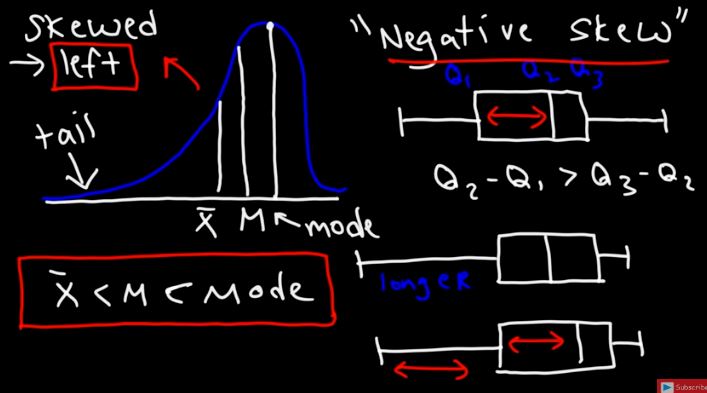 Skewed
→ left
tail
x̄ M ← mode
x̄ < M < Mode
"Negative Skew"
Q₁ Q₂ Q₃
Q₂ - Q₁ > Q₃ - Q₂
longeR
Subscribe